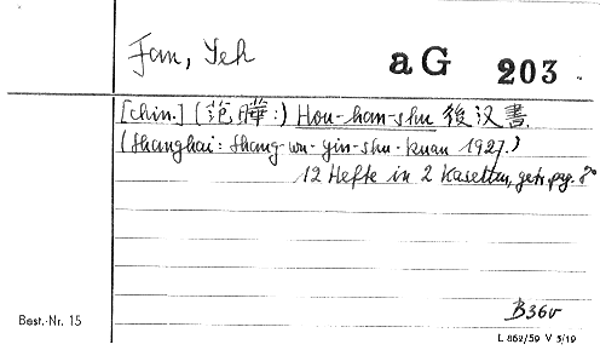 Fan, Yeh
aG 203
[chin.] (范曄:) Hou-han-shu 後汉書
(Shanghai: Shang-wu-yin-shu-kuan 1927.)
12 Hefte in 2 Kasetten, getr. pag. 8°
B36v
Best.-Nr. 15
L 862/59 V 3/19